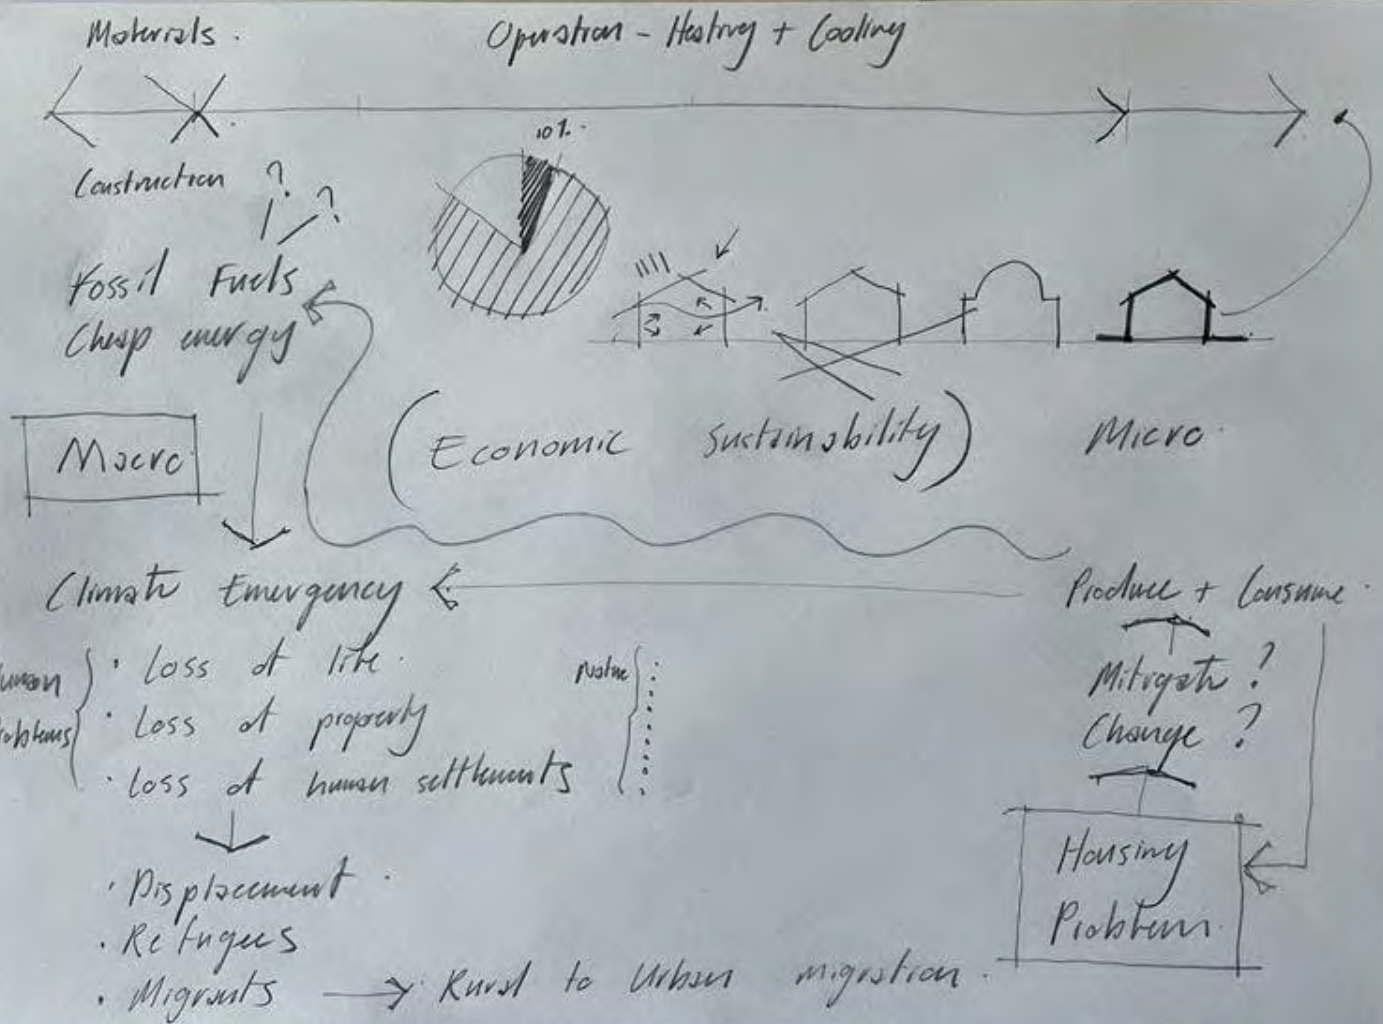 Materials.
Operation - Heating + Cooling
10%.
Construction ?
?
Fossil Fuels
Cheap energy
Macro
(Economic Sustainability)
Micro.
Climate Emergency
Produce + Consume.
Human Problems
· Loss of life.
· Loss of property
· Loss of human settlements
Nature
Mitigate ?
Change ?
Housing
Problem.
· Displacement.
· Refugees
· Migrants → Rural to Urban migration.